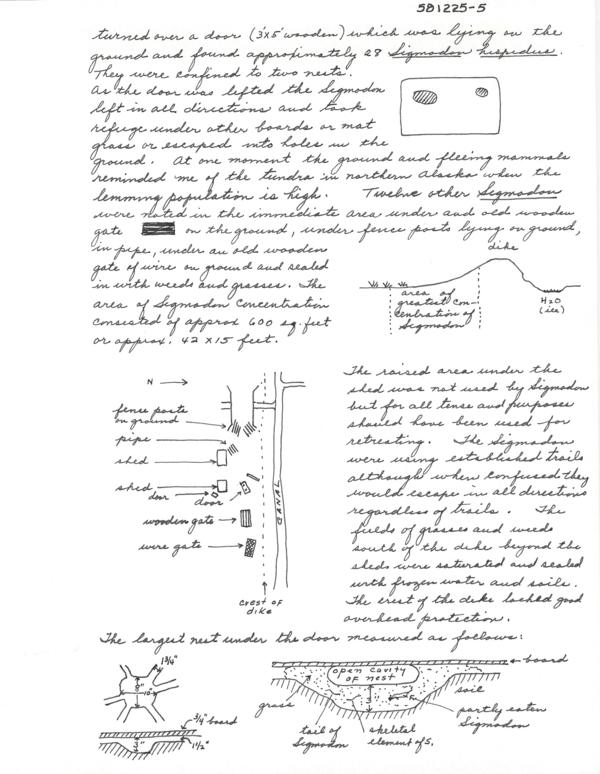 5B1225-5
turned over a door (3'x5' wooden) which was lying on the
ground and found approximately 28 Sigmodon hispidus.
They were confined to two nests.
As the door was lifted the Sigmodon
left in all directions and took
refuge under other boards or mat
grass or escaped into holes in the
ground. At one moment the ground and fleeing mammals
reminded me of the tundra in northern Alaska when the
lemming population is high. Twelve other Sigmodon
were noted in the immediate area under and old wooden
gate on the ground, under fence posts lying on ground,
in pipe, under an old wooden
gate of wire on ground and sealed
in with weeds and grasses. The
area of Sigmodon concentration
consisted of approx 600 sq. feet
or approx. 42 x 15 feet.
dike
area of
greatest con-
centration of
Sigmodon
H2O
(ice)
The raised area under the
shed was not used by Sigmodon
but for all tense and purposes
should have been used for
retreating. The Sigmodon
were using established trails
although when confused they
would escape in all directions
regardless of trails. The
fields of grasses and weeds
south of the dike beyond the
sheds were saturated and sealed
with frozen water and soils.
The crest of the dike lacked good
overhead protection.
N
fence posts
on ground
pipe
shed
shed
door
door
wooden gate
wire gate
CANAL
crest of
dike
The largest nest under the door measured as follows:
1 3/4"
8"
10"
3/4" board
3"
1 1/2"
board
open cavity
of nest
3"
grass
soil
tail of
Sigmodon
skeletal
element of S.
partly eaten
Sigmodon